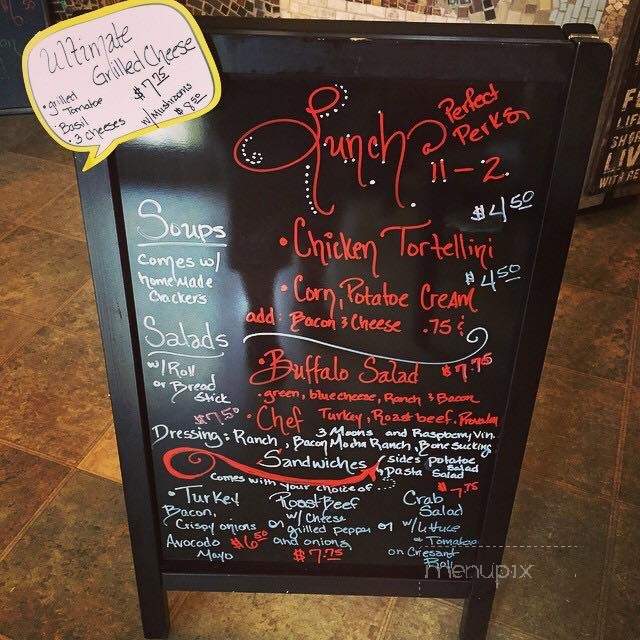 Ultimate
Grilled Cheese
• grilled $7.75
Tomatoe
Basil w/Mushrooms
• 3 cheeses $8.50
Lunch @ Perfect
Perks
11-2
$4.50
Soups • Chicken Tortellini
Comes w/
homewade $4.50
Crackers • Corn, Potatoe Cream
add: Bacon & Cheese .75¢
Salads
w/Roll • Buffalo Salad $7.75
or Bread
Stick • green, bluecheese, Ranch & Bacon
$7.50 • Chef Turkey, Roast beef, Provalon
Dressing: Ranch, 3 Moons and Raspberry Vin.
Bacon Mocha Ranch, Bone Sucking
Sandwiches sides potatoe Salad
Comes with your choice of... Pasta Salad
• Turkey
Bacon,
Crispy onions
Avocado $6.50
Mayo
or
Roast Beef
w/ Cheese
grilled pepper
and onions
$7.75
or
$7.75
Crab
Salad
w/ Lettuce
& Tomatoe
on Cresant
Roll
menupix
F
LIFE
SHOU
LIV
WITH RE